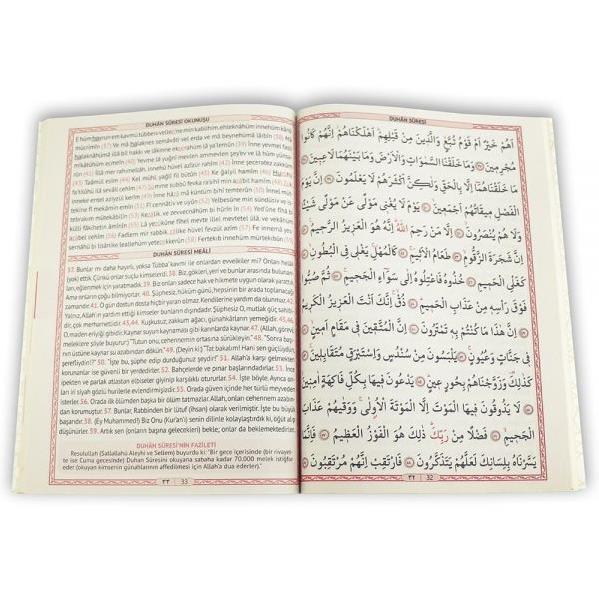 DUHÂN SÛRESİ OKUNUŞU
E hüm hayrun em kavmü tübbein velleziyne min kablihim ehleknâhüm innehüm kânû
mücrimîn (37) Ve mâ halaknes semâvâti vel erda ve mâ beynehümâ lâibîn (38) Mâ
halaknâhümâ illâ bil hakkı ve lâkinne ekserahüm lâ ya'lemûn (39) İnne yevmel fasli
mîkâtühüm ecmeîn (40) Yevme lâ yuğnî mevlen ammevlen şey'ev ve lâ hüm yünsa-
rûn (41) İllâ mer rahimellah, innehû hüvel azîzür rahîm (42) İnne şeceratez zekkûm
(43) Taâmül esîm (44) Kel mühl, yağlî fil bütûn (45) Ke ğalyil hamîm (46)
DUHÂN SÛRESİ MEÂLİ
37. Bunlar mı daha hayırlı, yoksa Tübba' kavmi ile onlardan evvelkiler mi? Onları helak
(yok) ettik. Çünkü onlar suçlu kimselerdi. 38. Biz, gökleri, yeri ve bunlar arasında bulunan-
ları, eğlenmek için yaratmadık. 39. Biz onları sadece hak ve hikmete uygun olarak yarattık.
Ama onların çoğu bilmiyorlar. 40. Şüphesiz, hüküm günü, hepsinin bir arada toplanacağı
zamandır. 41. O gün dostun dosta hiçbir yararı olmaz. Kendilerine yardım da olunmaz. 42.
Yalnız, Allah'ın yardım ettiği kimseler bunların dışındadır. Şüphesiz O, mutlak güç sahibi-
dir, çok merhametlidir. 43,44. Kuşkusuz, zakkum ağacı, günahkârların yemeğidir. 45,46.
O, maden eriyiği gibidir. Kaynar suyun kaynaması gibi karınlarda kaynar. 47. (Allah, görevli
meleklere şöyle buyurur:) "Tutun onu, cehennemin ortasına sürükleyin." 48. "Sonra başı-
nın üstüne kaynar su azabından dökün." 49. (Deyin ki:) "Tat bakalım! Hani sen güçlüydün,
şerefliydin!?" 50. "İşte bu, şüphe edip durduğunuz şeydir!" 51. Allah'a karşı gelmekten
korunanlar ise güvenli bir yerdedirler. 52. Bahçelerde ve pınar başlarındadırlar. 53. İnce
ipekten ve parlak atlastan elbiseler giyinip karşılıklı otururlar. 54. İşte böyle. Ayrıca on-
ları iri siyah gözlü hurilerle evlendirmişizdir. 55. Orada güven içinde her türlü meyveyi is-
terler. 56. Orada ilk ölümden başka bir ölüm tatmazlar. Allah, onları cehennem azabın-
dan korumuştur. 57. Bunlar, Rabbinden bir lütuf (ihsan) olarak verilmiştir. İşte bu büyük
başarıdır. 58. (Ey Muhammed!) Biz Onu (Kur'an'ı) senin dilinle kolaylaştırdık ki, öğüt alıp
düşünürler. 59. Artık sen (onların başına gelecekleri) bekle; onlar da beklemektedirler.
DUHÂN SÛRESİ'NİN FAZİLETİ
Resulullah (Sallallahü Aleyhi ve Sellem) buyurdu ki: "Bir gece içerisinde (bir rivayet-
te ise Cuma gecesinde) Duhan Suresini okuyana sabaha kadar 70.000 melek istiğfar
eder (okuyan kimsenin günahlarının affedilmesi için Allah'a dua ederler)."
٣٣ 33
DUHÂN SÛRESİ
أَهُمْ خَيْرٌ أَمْ قَوْمُ تُبَّعٍ وَالَّذِينَ مِنْ قَبْلِهِمْ أَهْلَكْنَاهُمْ إِنَّهُمْ كَانُوا
مُجْرِمِينَ وَمَا خَلَقْنَا السَّمٰوَاتِ وَالْأَرْضَ وَمَا بَيْنَهُمَا لَاعِبِينَ
مَا خَلَقْنَاهُمَا إِلَّا بِالْحَقِّ وَلٰكِنَّ أَكْثَرَهُمْ لَا يَعْلَمُونَ إِنَّ يَوْمَ
الْفَصْلِ مِيقَاتُهُمْ أَجْمَعِينَ يَوْمَ لَا يُغْنِي مَوْلًى عَنْ مَوْلًى شَيْئًا
وَلَا هُمْ يُنْصَرُونَ إِلَّا مَنْ رَحِمَ اللّٰهُ إِنَّهُ هُوَ الْعَزِيزُ الرَّحِيمُ
إِنَّ شَجَرَةَ الزَّقُّومِ طَعَامُ الْأَثِيمِ كَالْمُهْلِ يَغْلِي فِي الْبُطُونِ
كَغَلْيِ الْحَمِيمِ خُذُوهُ فَاعْتِلُوهُ إِلَى سَوَاءِ الْجَحِيمِ ثُمَّ صُبُّوا
فَوْقَ رَأْسِهِ مِنْ عَذَابِ الْحَمِيمِ ذُقْ إِنَّكَ أَنْتَ الْعَزِيزُ الْكَرِيمُ
إِنَّ هٰذَا مَا كُنْتُمْ بِهِ تَمْتَرُونَ إِنَّ الْمُتَّقِينَ فِي مَقَامٍ أَمِينٍ
فِي جَنَّاتٍ وَعُيُونٍ يَلْبَسُونَ مِنْ سُنْدُسٍ وَإِسْتَبْرَقٍ مُتَقَابِلِينَ
كَذٰلِكَ وَزَوَّجْنَاهُمْ بِحُورٍ عِينٍ يَدْعُونَ فِيهَا بِكُلِّ فَاكِهَةٍ آمِنِينَ
لَا يَذُوقُونَ فِيهَا الْمَوْتَ إِلَّا الْمَوْتَةَ الْأُولَى وَوَقٰيهُمْ عَذَابَ
الْجَحِيمِ فَضْلًا مِنْ رَبِّكَ ذٰلِكَ هُوَ الْفَوْزُ الْعَظِيمُ فَإِنَّمَا
يَسَّرْنَاهُ بِلِسَانِكَ لَعَلَّهُمْ يَتَذَكَّرُونَ فَارْتَقِبْ إِنَّهُمْ مُرْتَقِبُونَ
٣٢ 32